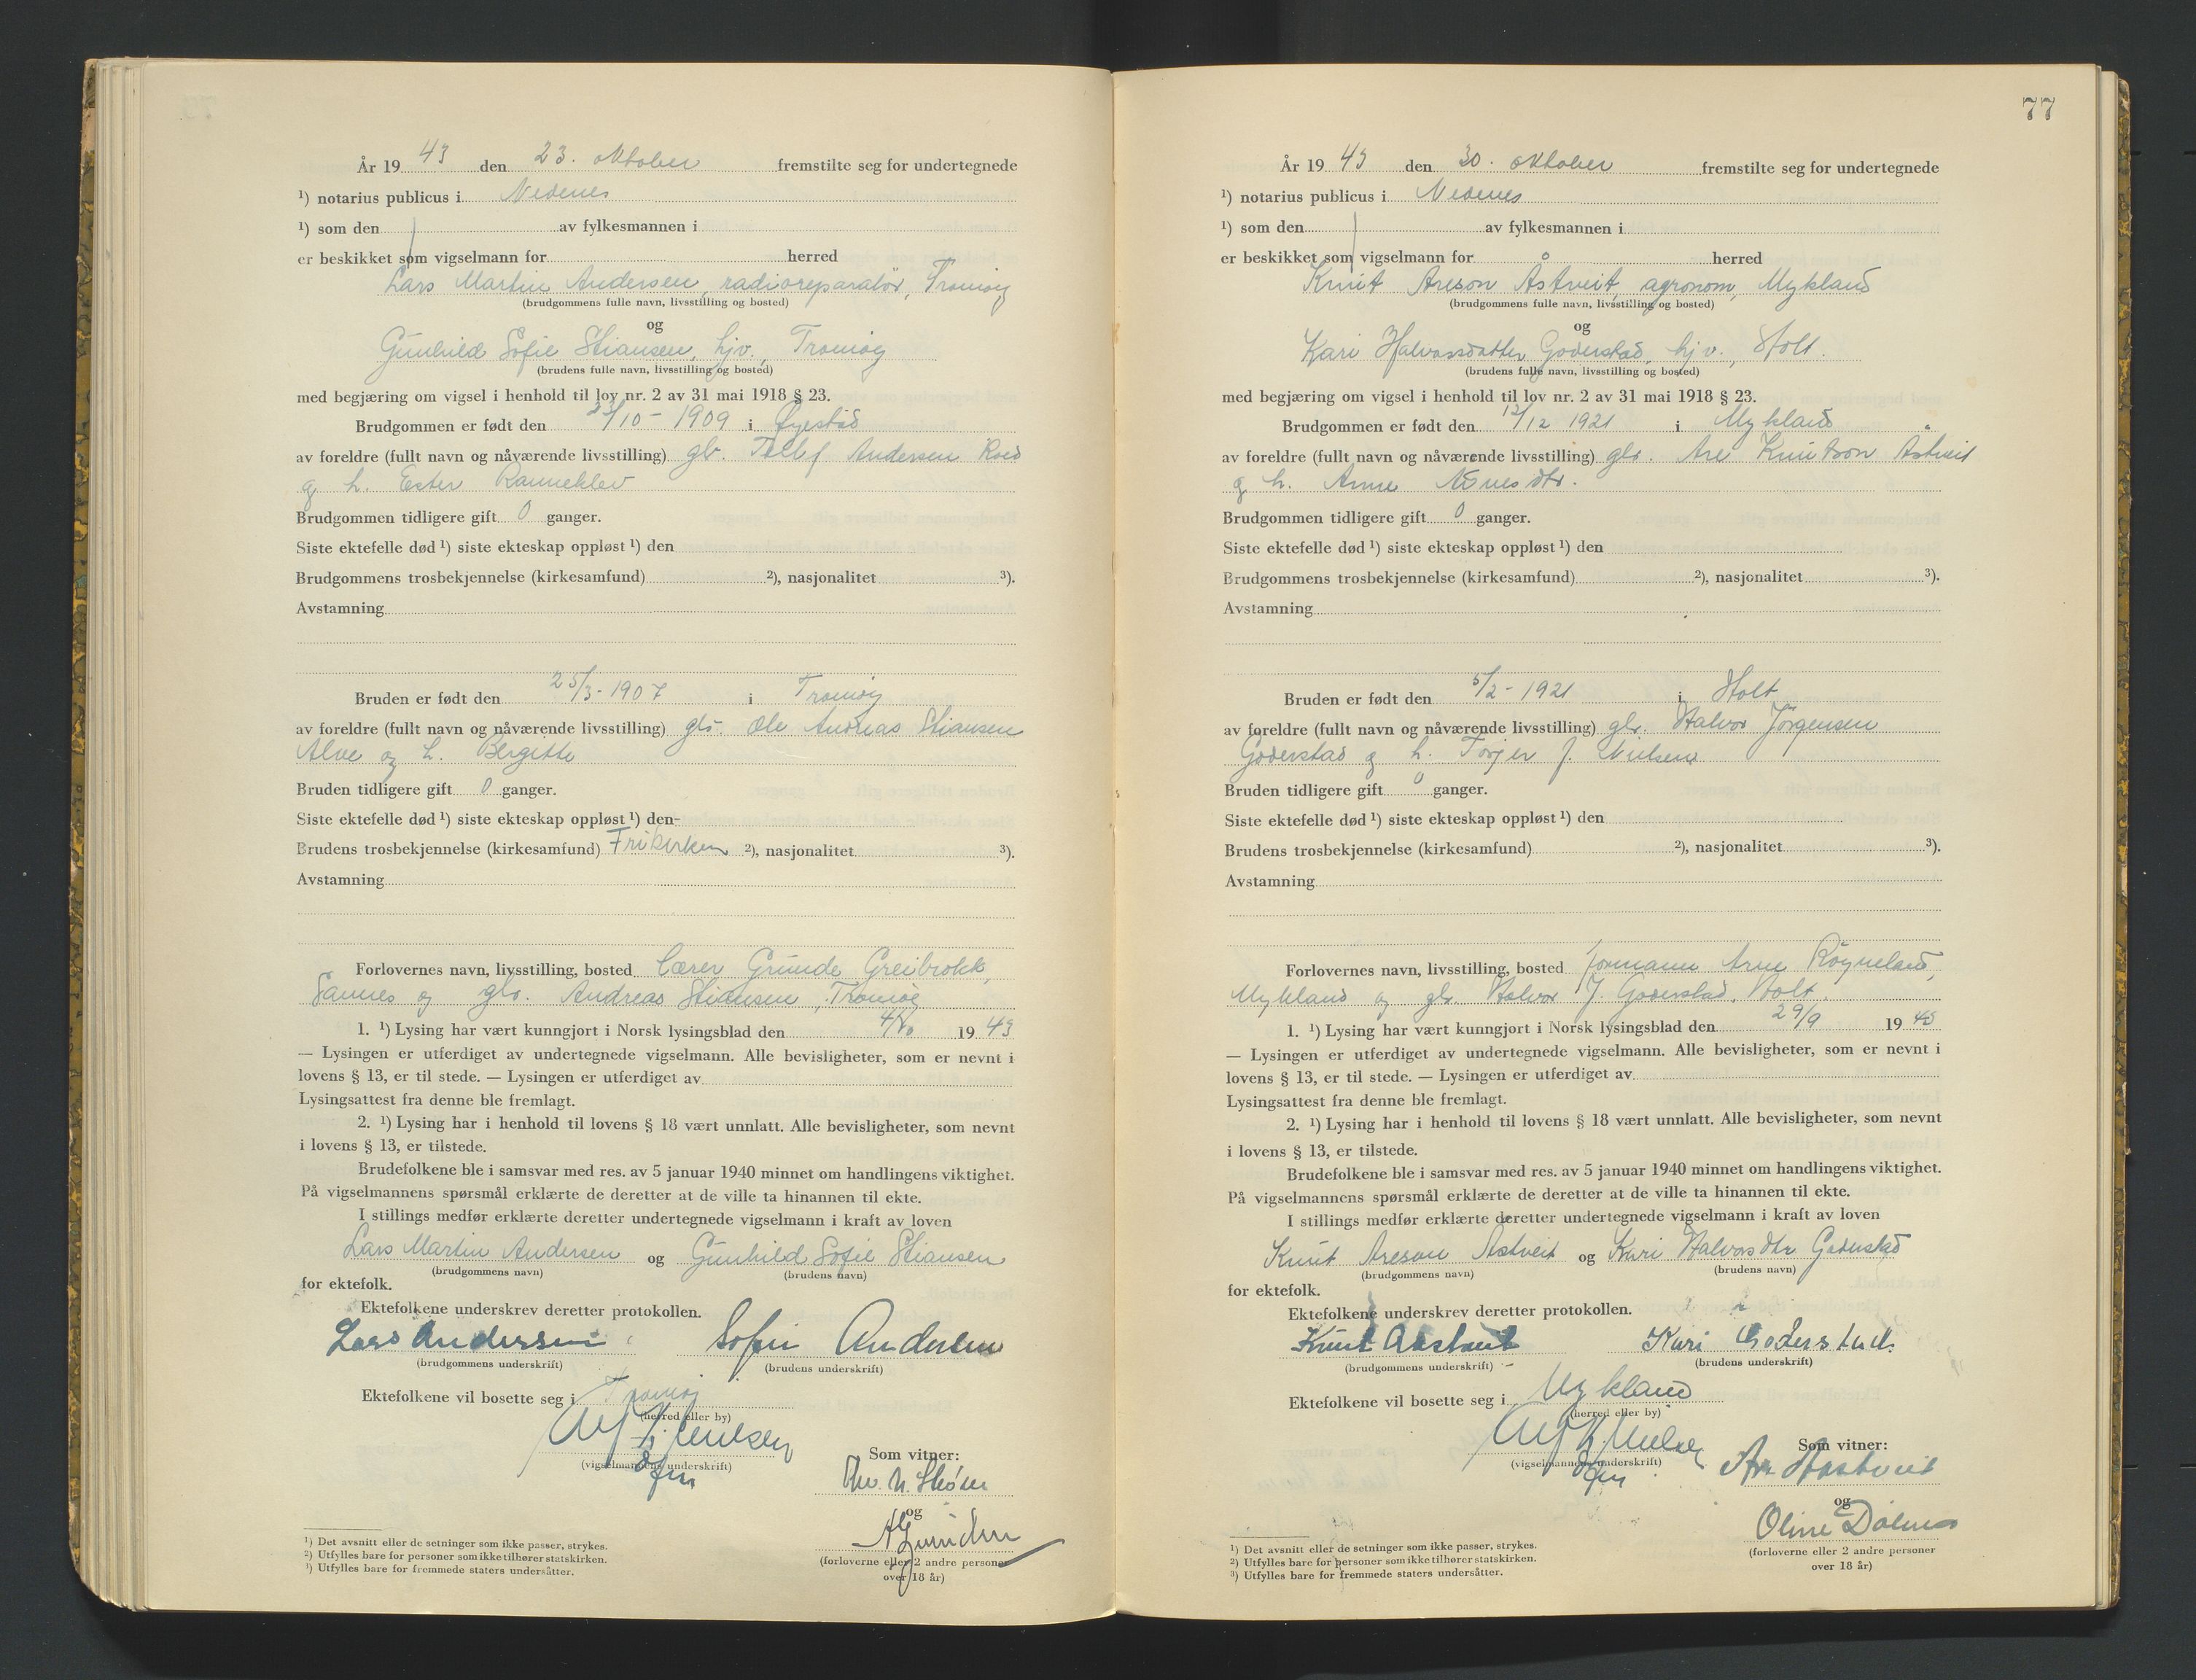 År 19 43 den 23. oktober fremstilte seg for undertegnede
¹) notarius publicus i Nedenes
¹) som den av fylkesmannen i
er beskikket som vigselmann for herred
Lars Martin Andersen, radioreparatör, Tromöy
(brudgommens fulle navn, livsstilling og bosted)
og
Gunhild Sofie Stiansen, hjv., Tromöy
(brudens fulle navn, livsstilling og bosted)
med begjæring om vigsel i henhold til lov nr. 2 av 31 mai 1918 § 23.
Brudgommen er født den 23/10 - 1909 i Öyestad
av foreldre (fullt navn og nåværende livsstilling) gbr. Tellef Andersen
og h. Ester Ranneklev
Brudgommen tidligere gift 0 ganger.
Siste ektefelle død ¹) siste ekteskap oppløst ¹) den
Brudgommens trosbekjennelse (kirkesamfund) ²), nasjonalitet ³).
Avstamning
Bruden er født den 25/3 - 1907 i Tromöy
av foreldre (fullt navn og nåværende livsstilling) gbr. Ole Andreas Stiansen
Alve og h. Bergitte
Bruden tidligere gift 0 ganger.
Siste ektefelle død ¹) siste ekteskap oppløst ¹) den
Brudens trosbekjennelse (kirkesamfund) Frikirken ²), nasjonalitet ³).
Avstamning
Forlovernes navn, livsstilling, bosted Lærer Grunde Greibrokk,
Sannes og gbr. Andreas Stiansen, Tromöy
1. ¹) Lysing har vært kunngjort i Norsk lysingsblad den 4/10 19 43
— Lysingen er utferdiget av undertegnede vigselmann. Alle bevisligheter, som er nevnt i
lovens § 13, er til stede. — Lysingen er utferdiget av
Lysingsattest fra denne ble fremlagt.
2. ¹) Lysing har i henhold til lovens § 18 vært unnlatt. Alle bevisligheter, som nevnt
i lovens § 13, er tilstede.
Brudefolkene ble i samsvar med res. av 5 januar 1940 minnet om handlingens viktighet.
På vigselmannens spørsmål erklærte de deretter at de ville ta hinannen til ekte.
I stillings medfør erklærte deretter undertegnede vigselmann i kraft av loven
Lars Martin Andersen og Gunhild Sofie Stiansen
(brudgommens navn) (brudens navn)
for ektefolk.
Ektefolkene underskrev deretter protokollen.
Lars Andersen Sofie Andersen
(brudgommens underskrift) (brudens underskrift)
Ektefolkene vil bosette seg i Tromöy
(herred eller by)
Alf
(vigselmannens underskrift)
Som vitner:
og
(forloverne eller 2 andre personer
over 18 år)
¹) Det avsnitt eller de setninger som ikke passer, strykes.
²) Utfylles bare for personer som ikke tilhører statskirken.
³) Utfylles bare for fremmede staters undersåtter.
77
År 19 43 den 30. oktober fremstilte seg for undertegnede
¹) notarius publicus i Nedenes
¹) som den av fylkesmannen i
er beskikket som vigselmann for herred
Knut Areson Åstveit, agronom, Mykland
(brudgommens fulle navn, livsstilling og bosted)
og
Kari Halvorsdatter Goderstad, hjv., Holt.
(brudens fulle navn, livsstilling og bosted)
med begjæring om vigsel i henhold til lov nr. 2 av 31 mai 1918 § 23.
Brudgommen er født den 12/12 1921 i Mykland
av foreldre (fullt navn og nåværende livsstilling) gbr. Are Knutson Åstveit
og h. Anne
Brudgommen tidligere gift 0 ganger.
Siste ektefelle død ¹) siste ekteskap oppløst ¹) den
Brudgommens trosbekjennelse (kirkesamfund) ²), nasjonalitet ³).
Avstamning
Bruden er født den 5/2 - 1921 i Holt
av foreldre (fullt navn og nåværende livsstilling) gbr. Halvor Jörgensen
Goderstad og h. Torjer J. Nielsen
Bruden tidligere gift 0 ganger.
Siste ektefelle død ¹) siste ekteskap oppløst ¹) den
Brudens trosbekjennelse (kirkesamfund) ²), nasjonalitet ³).
Avstamning
Forlovernes navn, livsstilling, bosted formann Arne Röyneland,
Mykland og gbr. Halvor J. Goderstad, Holt.
1. ¹) Lysing har vært kunngjort i Norsk lysingsblad den 29/9 19 43
— Lysingen er utferdiget av undertegnede vigselmann. Alle bevisligheter, som er nevnt i
lovens § 13, er til stede. — Lysingen er utferdiget av
Lysingsattest fra denne ble fremlagt.
2. ¹) Lysing har i henhold til lovens § 18 vært unnlatt. Alle bevisligheter, som nevnt
i lovens § 13, er tilstede.
Brudefolkene ble i samsvar med res. av 5 januar 1940 minnet om handlingens viktighet.
På vigselmannens spørsmål erklærte de deretter at de ville ta hinannen til ekte.
I stillings medfør erklærte deretter undertegnede vigselmann i kraft av loven
Knut Areson Åstveit og Kari Halvorsdtr Goderstad
(brudgommens navn) (brudens navn)
for ektefolk.
Ektefolkene underskrev deretter protokollen.
Knut Aastveit Kari Goderstad.
(brudgommens underskrift) (brudens underskrift)
Ektefolkene vil bosette seg i Mykland
(herred eller by)
Alf
(vigselmannens underskrift)
Som vitner:
Are Aastveit
og
Oline Dalen
(forloverne eller 2 andre personer
over 18 år)
¹) Det avsnitt eller de setninger som ikke passer, strykes.
²) Utfylles bare for personer som ikke tilhører statskirken.
³) Utfylles bare for fremmede staters undersåtter.